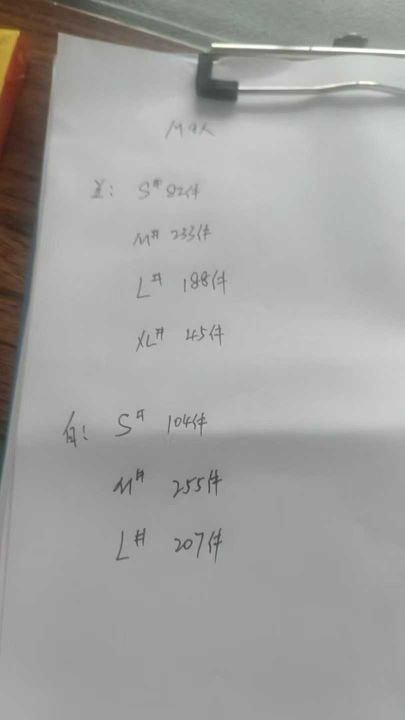 Max
蓝: S# 82件
M# 233件
L# 188件
XL# 45件
白: S# 104件
M# 255件
L# 207件